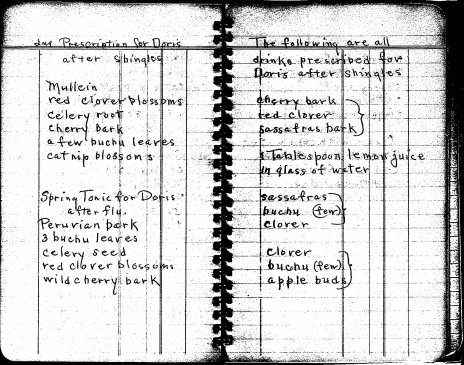 2nd Prescription for Doris
after shingles
Mullein
red clover blossoms
celery root
cherry bark
a few buchu leaves
catnip blossoms
Spring Tonic for Doris
after flu.
Peruvian bark
3 buchu leaves
celery seed
red clover blossoms
wild cherry bark
The following are all
drinks prescribed for
Doris after shingles
cherry bark
red clover
sassafras bark
1 Tablespoon lemon juice
in glass of water
sassafras
buchu (few)
clover
clover
buchu (few)
apple buds